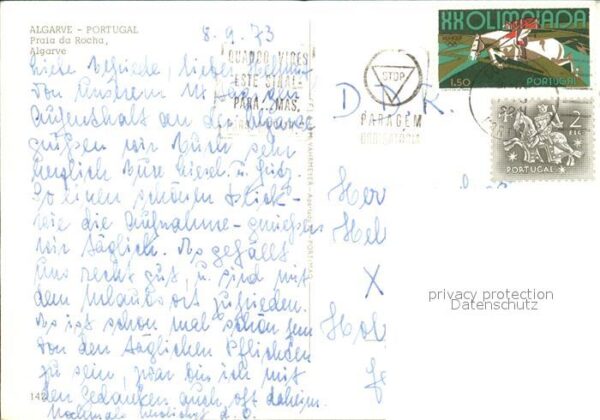 ALGARVE - PORTUGAL
Praia da Rocha,
Algarve
8.9.73
Liebe Elfriede, lieber Hellmut
von unserem
Aufenthalt an der Algarve
grüßen wir Euch sehr
herzlich Eure Gisel. u.
So einen schönen Blick -
wie die Aufnahme - genießen
wir täglich. Es gefällt
uns recht gut, u. sind mit
dem Urlaubsort zufrieden.
Es ist schon mal schön fern
von den täglichen Pflichten
zu sein, zwar bin ich mit
den Gedanken auch oft daheim.
Nochmals herzlichst d. O.
142
QUANDO VIRES
ESTE SINAL
PARA MAS
STOP
PARAGEM
OBRIGATÓRIA
XX OLIMPÍADA
1.50 PORTUGAL
2
ESC
PORTUGAL
D D R.
Her
Hel
X
Hol
privacy protection
Datenschutz